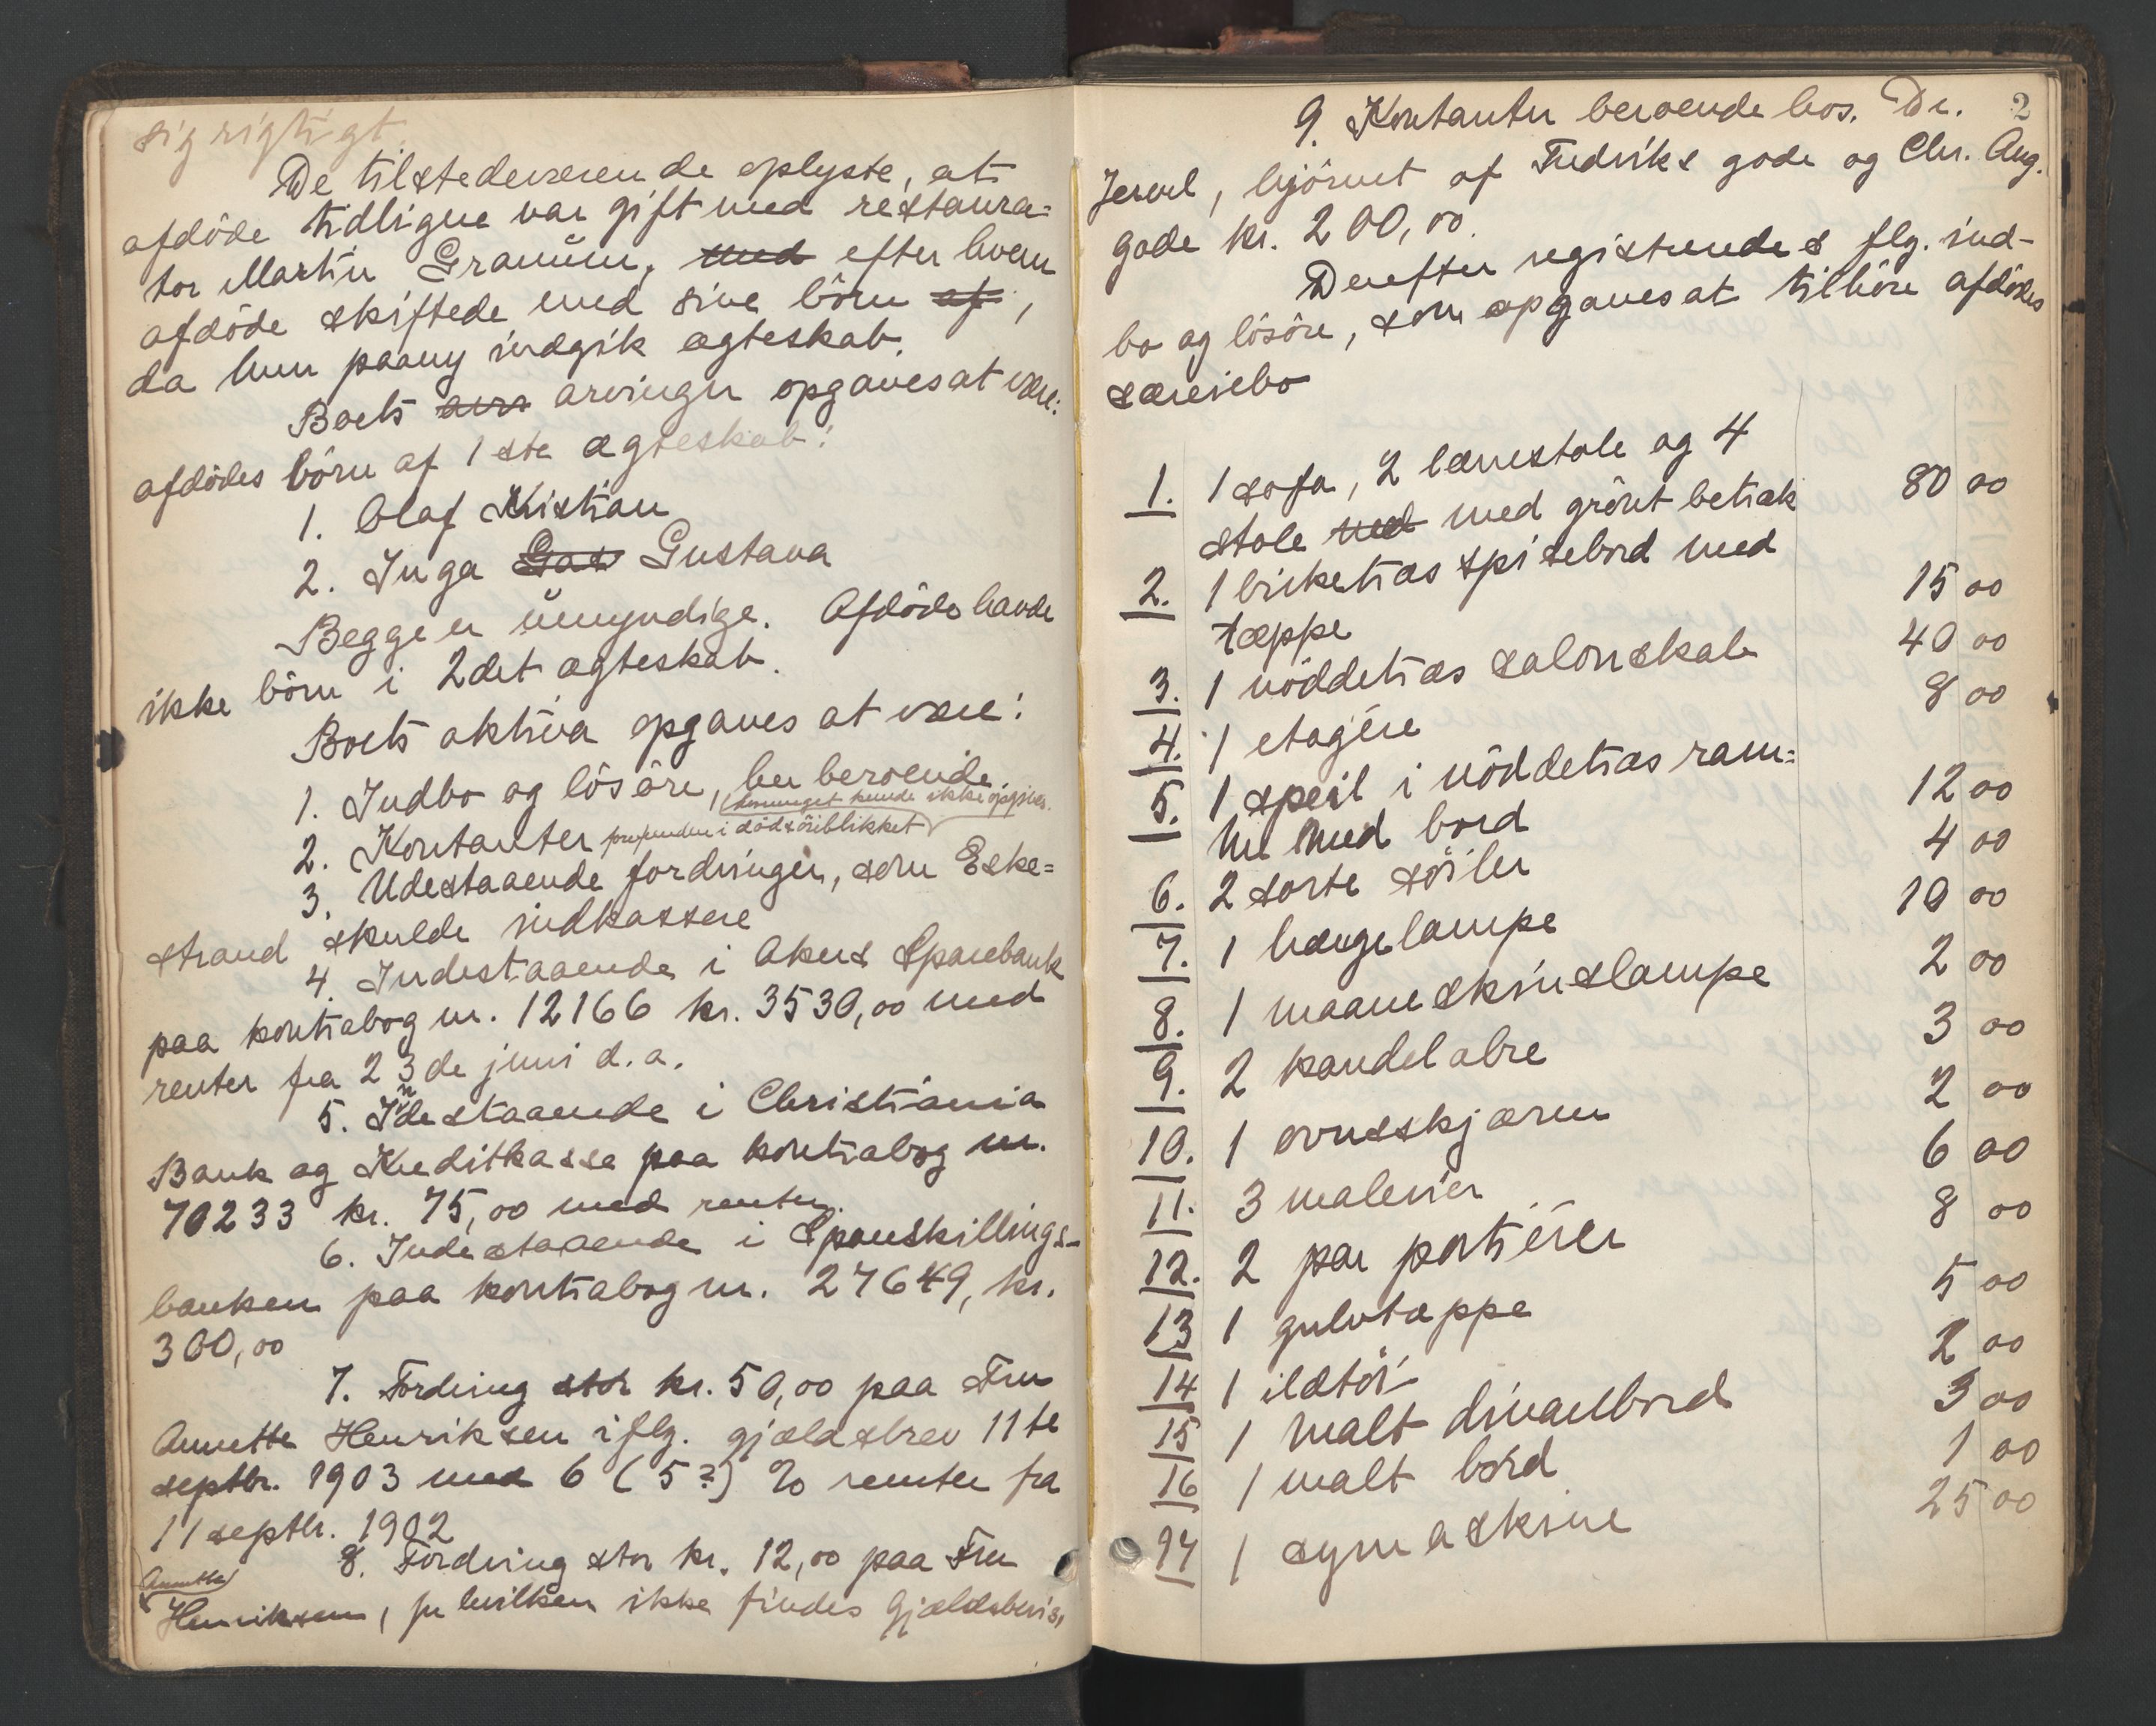 sig rigtigt.
De tilstedeværende oplyste, at
afdöde tidligere var gift med restaura=
tör Martin Granum, med efter hvem
afdöde skiftede med sine börn af,
da hun paany indgik ægteskab.
Boets arv arvinger opgaves at være:
afdödes börn af 1ste ægteskab:
1. Olaf Kristian
2. Inga Gas Gustava
Begge er umyndige. Afdöde havde
ikke börn i 2det ægteskab.
Boets aktiva opgaves at være:
1. Indbo og lösöre, her beroende.
2. Kontanter forefunden i dödsöieblikket (hvormeget kunde ikke opgives.
3. Udestaaende fordringer, som Eske=
strand skulde indkassere
4. Indestaaende i Akers Sparebank
paa kontrabog nr. 12166 kr. 3530,00 med
renter fra 23de juni d.a.
5. Indestaaende i Christiania
Bank og Kreditkasse paa kontrabog nr.
70233 kr. 75,00 med renter.
6. Indestaaende i Spareskillings-
banken paa kontrabog nr. 27649, kr.
300,00
7. Fordring stor kr. 50,00 paa Fru
Annette Henriksen iflg. gjældsbrev 11te
septbr. 1903 med 6 (5?) % renter fra
11 septbr. 1902
8. Fordring stor kr. 12,00 paa Fru
Annette
Henriksen, for hvilken ikke findes gjældsbevis,
2
9. Kontanter beroende hos. Dr.
Jervel, hjörnet af Fredriks gade og Chr. Aug.
gade kr. 200,00.
Derefter registreredes flg. ind-
bo og lösöre, som opgaves at tilhöre afdödes
særeiebo
1. 1 sofa, 2 lænestole og 4
stole med med grönt betræk 80 00
2. 1 birketræs spisebord med
tæppe 15 00
3. 1 nöddetræs salonskab 40 00
4. 1 etagére 8 00
5. 1 speil i nöddetræs ram=
me med bord 12 00
6. 2 sorte söiler 4 00
7. 1 hængelampe 10 00
8. 1 maaneskinslampe 2 00
9. 2 kandelabre 3 00
10. 1 ovnsskjærm 2 00
11. 3 malerier 6 00
12. 2 par portiérer 8 00
13 1 gulvtæppe 5 00
14 1 ildtöi 2 00
15 1 malt divanbord 3 00
16 1 malt bord 1 00
17 1 symaskine 25 00